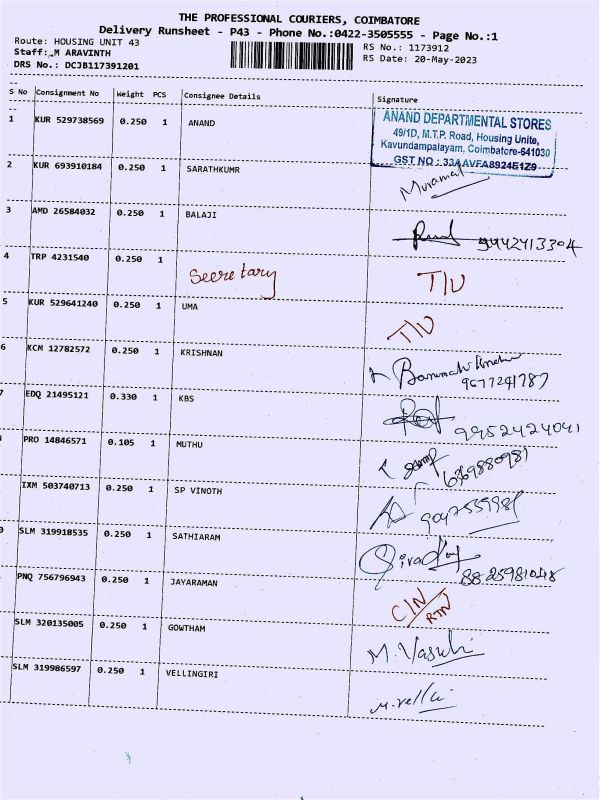 THE PROFESSIONAL COURIERS, COIMBATORE
Delivery Runsheet - P43 - Phone No.:0422-3505555 - Page No.:1
Route: HOUSING UNIT 43 RS No.: 1173912
Staff: M ARAVINTH RS Date: 20-May-2023
DRS No.: DCJB117391201
S No Consignment No Weight PCS Consignee Details Signature
1 KUR 529738569 0.250 1 ANAND
ANAND DEPARTMENTAL STORES
49/1D, M.T.P. Road, Housing Unite,
Kavundampalayam, Coimbatore-641030
GST NO : 33AAVFA8924E1Z9
2 KUR 693910184 0.250 1 SARATHKUMR
3 AMD 26584032 0.250 1 BALAJI 9442413304
4 TRP 4231540 0.250 1 Secretary T/U
5 KUR 529641240 0.250 1 UMA T/U
6 KCM 12782572 0.250 1 KRISHNAN
9677291787
7 EDQ 21495121 0.330 1 KBS 9952424041
PRO 14846571 0.105 1 MUTHU 6369880981
IXM 503740713 0.250 1 SP VINOTH
0 SLM 319918535 0.250 1 SATHIARAM
8825981048
PNQ 756796943 0.250 1 JAYARAMAN C/N
RTN
SLM 320135005 0.250 1 GOWTHAM M. Vasuki
SLM 319986597 0.250 1 VELLINGIRI M. velli